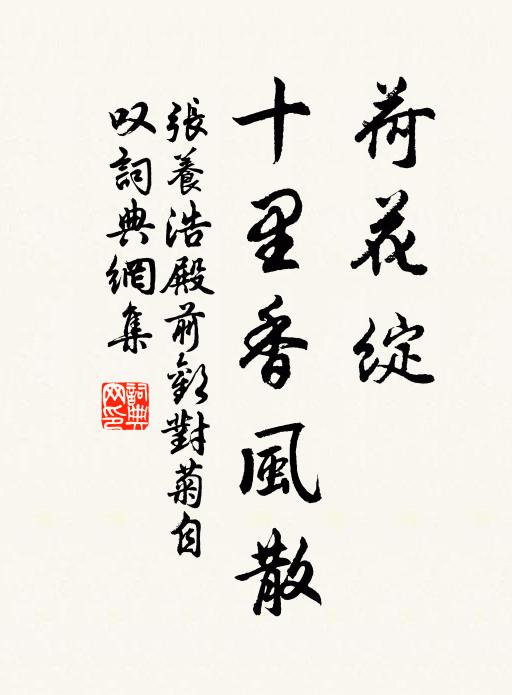 荷花綻
十里香風散
張養浩殿前歡對菊自
叹詞典網集
詞典
网印